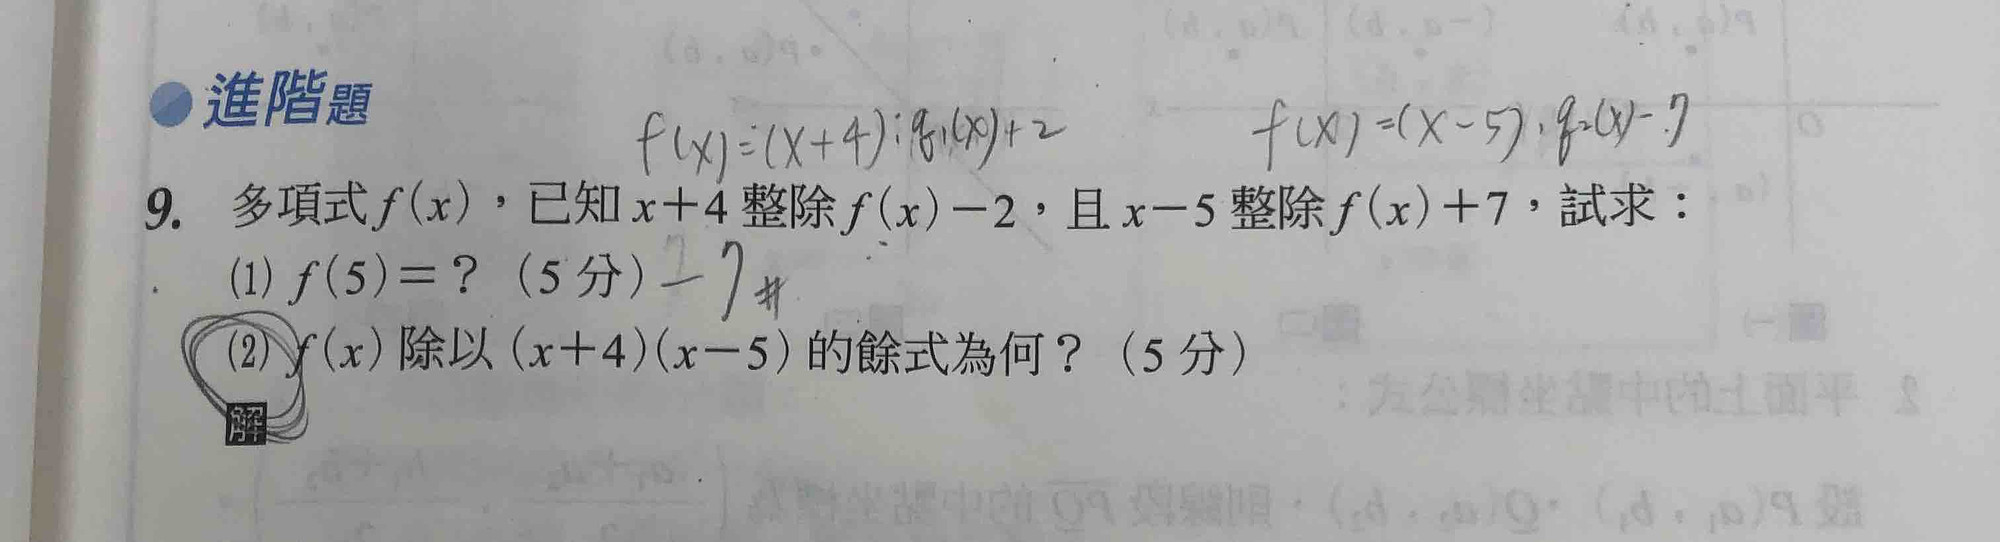 進階題
f(x)=(x+4)·q₁(x)+2 f(x)=(x-5)·q₂(x)-7
9. 多項式 f(x),已知 x+4 整除 f(x)-2,且 x-5 整除 f(x)+7,試求:
(1) f(5)=?(5 分) -7#
(2) f(x) 除以 (x+4)(x-5) 的餘式為何?(5 分)
解